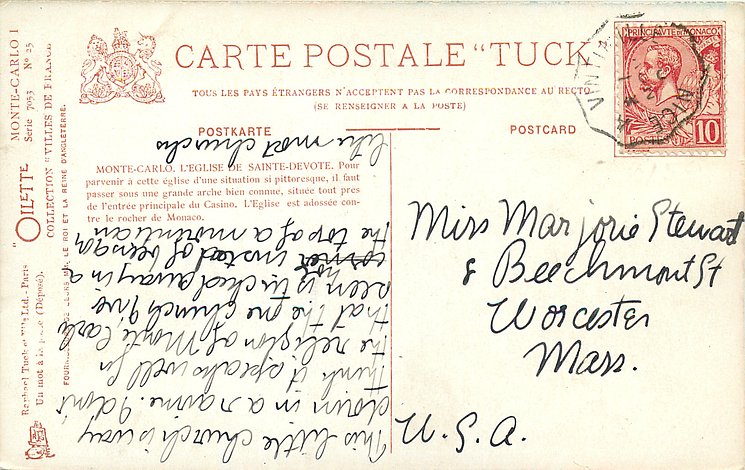 CARTE POSTALE "TUCK
TOUS LES PAYS ÉTRANGERS N'ACCEPTENT PAS LA CORRESPONDANCE AU RECTO
(SE RENSEIGNER A LA POSTE)
POSTKARTE
POSTCARD
MONTE-CARLO. L'EGLISE DE SAINTE-DEVOTE. Pour
parvenir à cette église d'une situation si pittoresque, il faut
passer sous une grande arche bien connue, située tout pres
de l'entrée principale du Casino. L'Eglise est adossée con-
tre le rocher de Monaco.
This little church is way
down in a ravine. I don't
think it speaks well for
the religion of Monte Carlo
that the one church I've
seen is tucked away in a
corner instead of being on
the top of a mountain
like most churches
Miss Marjorie Stewart
8 Beechmont St
Worcester
Mass.
U.S.A.
PRINCIPAUTÉ DE MONACO
10
POSTES
VINTIMILLE A NICE
"OILETTE
MONTE-CARLO I
Série 7053 No 25
COLLECTION "VILLES DE FRANCE
LE ROI ET LA REINE D'ANGLETERRE.
Raphael Tuck et Fils Ltd. - Paris
Un mot à la (Déposé).